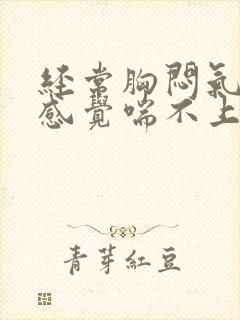 经常胸闷氣
感覺喘不上
青芽紅豆